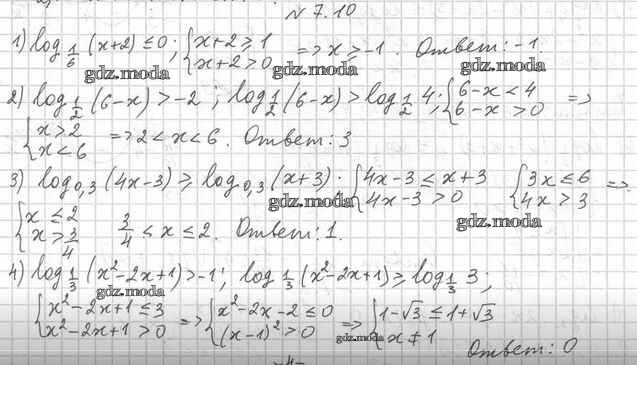 № 7.10
1) log_{1/6} (x+2) ≤ 0 ; { x+2 ≥ 1 ; x+2 > 0 => x ≥ -1 . Ответ: -1.
gdz.moda gdz.moda gdz.moda
2) log_{1/2} (6-x) > -2 ; log_{1/2} (6-x) > log_{1/2} 4 ; { 6-x < 4 ; 6-x > 0 =>
{ x > 2 ; x < 6 => 2 < x < 6 . Ответ: 3
3) log_{0,3} (4x-3) ≥ log_{0,3} (x+3) ; { 4x-3 ≤ x+3 ; 4x-3 > 0 { 3x ≤ 6 ; 4x > 3 =>
gdz.moda gdz.moda
{ x ≤ 2 ; x > 3/4 3/4 < x ≤ 2 . Ответ: 1.
4) log_{1/3} (x²-2x+1) > -1 ; log_{1/3} (x²-2x+1) ≥ log_{1/3} 3 ;
gdz.moda
{ x²-2x+1 ≤ 3 ; x²-2x+1 > 0 => { x²-2x-2 ≤ 0 ; (x-1)² > 0 => { 1-√3 ≤ 1+√3 ; x ≠ 1
gdz.moda
Ответ: 0